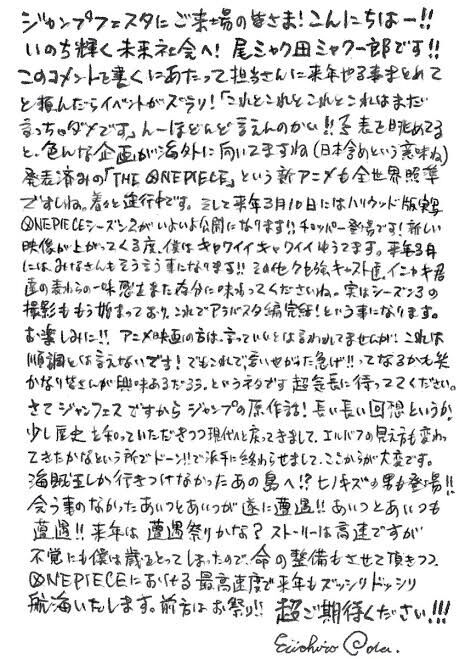 ジャンプフェスタにご来場の皆さま!こんにちはー!!
いのち輝く未来社会へ! 尾ミャク田ミャクー郎です!!
このコメントを書くにあたって担当さんに来年やる事まとめて
と頼んだらイベントがズラリ!「これとこれとこれとこれはまだ
言っちゃダメです」んーほとんど言えんのかい!!予表を眺めてる
と、色んな企画が海外に向いてますね(日本含めという意味ね)
発表済みの「THE ONE PIECE」という新アニメも全世界照準
ですしね。着々と進行中です。そして来年3月10日にはハリウッド版実写
ONEPIECEシーズン2がいよいよ公開になります!!チョッパー登場です!新しい
映像が上がってくる度、僕はキャワイイキャワイイゆうてます。来年3月
には、みなさんもそう言う事になります!!その他クセ強キャスト達、イニャキ君
達の麦わらの一味感もまた存分に味わってくださいね。実はシーズン3の
撮影ももう始まっており、これでアラバスタ編完結!という事になります。
お楽しみに!! アニメ映画の方は、言っていいとは言われてませんが、これは
順調とは言えないです!でもこれで、言いやがった急げ!!ってなるかも笑
かなり皆さんが興味あるだろう、というネタです 超気長に待っててください。
さてジャンフェスですからジャンプの原作話!長い長い回想というか
少し歴史を知っていただきつつ現代へと戻ってきまして、エルバフの見え方も変わっ
てきたかなという所でドーン!!で派手に終わらせまして、ここからが大変です。
海賊王しか行きつけなかったあの島へ!?ヒノキズの男も登場!!
会う事のなかったあいつとあいつが遂に遭遇!!あいつとあいつも
遭遇!! 来年は遭遇祭りかな? ストーリーは高速ですが
不覚にも僕は歳をとってしまったので、命の整備もさせて頂きつつ
ONEPIECEにおける最高速度で来年もズッシリドッシリ
航海いたします。前方はお祭り!! 超ご期待ください!!!
Eiichiro Oda.